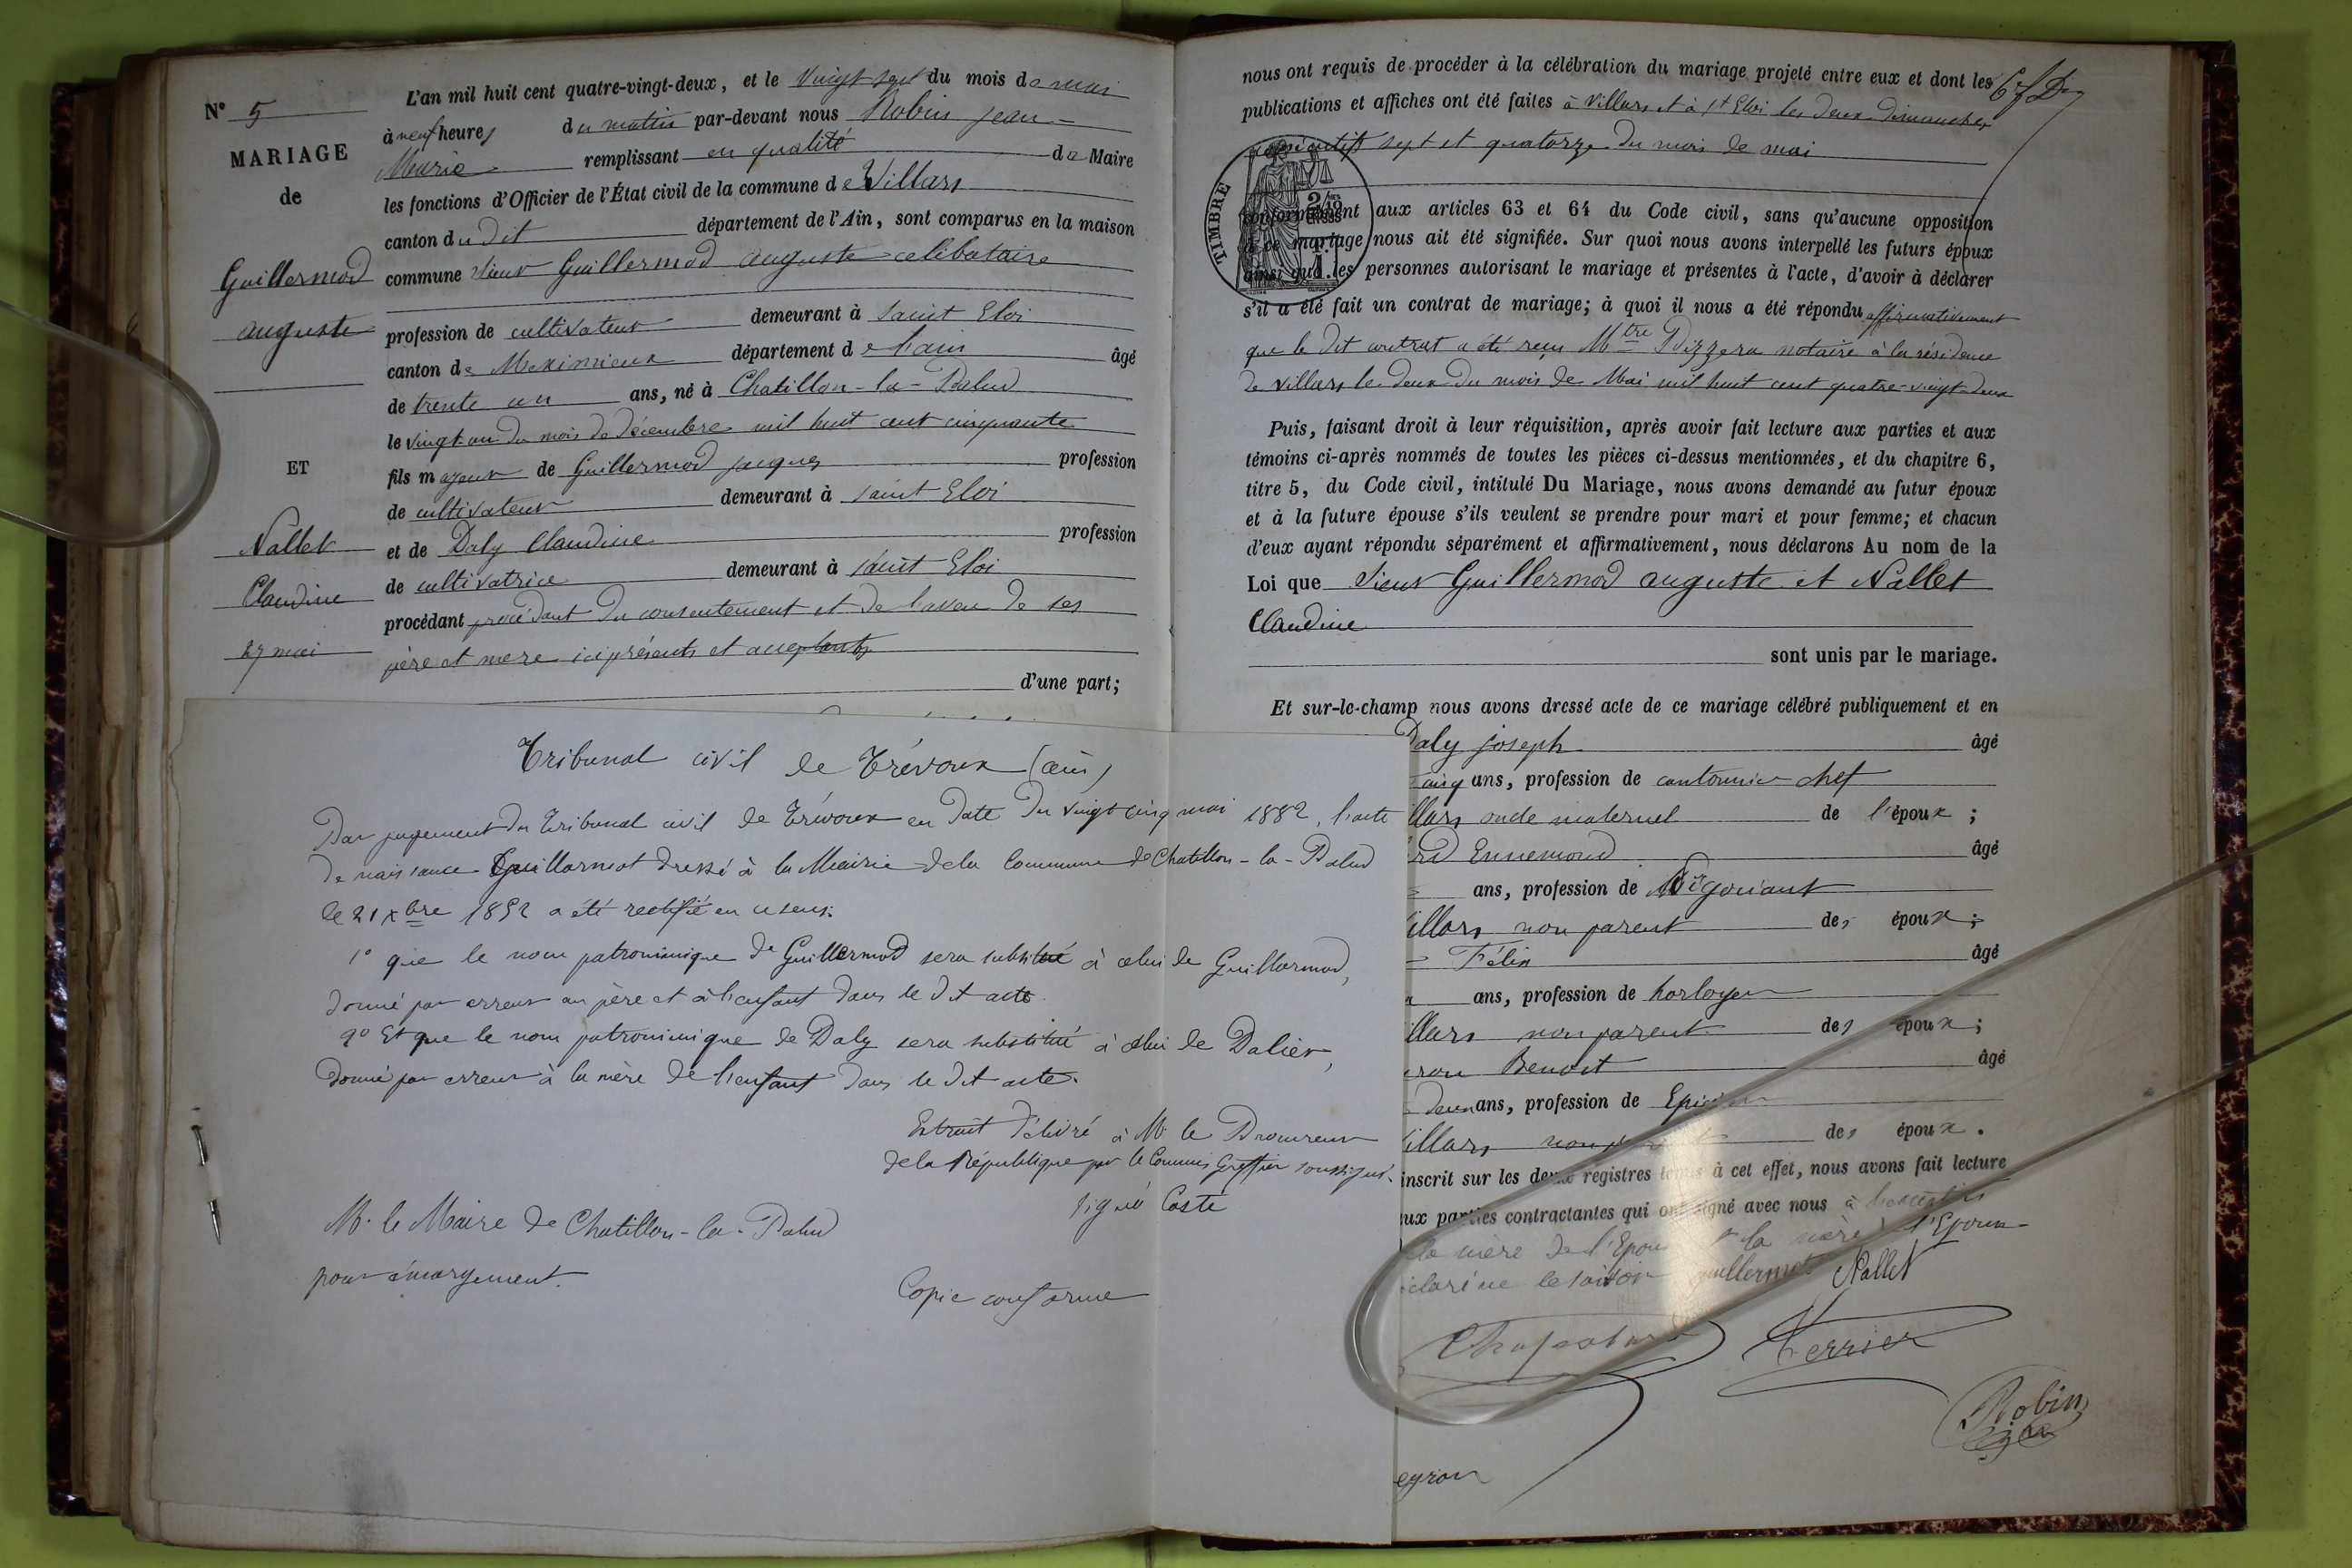 N° 5
MARIAGE
de
Guillermod
auguste
ET
Nallet
Claudine
27 mai
L'an mil huit cent quatre-vingt-deux, et le vingt sept du mois de mai
à neuf heures du matin par-devant nous Robin jean-
Marie remplissant en qualité de Maire
les fonctions d'Officier de l'État civil de la commune de Villars
canton du dit département de l'Ain, sont comparus en la maison
commune sieur Guillermod auguste celibataire
profession de cultivateur demeurant à saint Eloi
canton de Meximieux département de l'ain âgé
de trente un ans, né à Chatillon-la-Palud
le vingt un du mois de décembre mil huit cent cinquante
fils majeur de Guillermod jacques profession
de cultivateur demeurant à saint Eloi
et de Daly Claudine profession
de cultivatrice demeurant à saint Eloi
procédant procédant du consentement et de l'aveu de ses
père et mere ici présents et acceptants
d'une part;
Tribunal civil de Trévoux (ain)
Par jugement du Tribunal civil de Trévoux en date du vingt cinq mai 1882, l'acte
de naissance Guillarmot dressé à la Mairie de la Commune de Chatillon-la-Palud
le 21 xbre 1852 a été rectifié en ce sens:
1° que le nom patronimique de Guillermod sera substitué à celui de Guillarmod,
donné par erreur au père et à l'enfant dans le dit acte.
2° Et que le nom patronimique de Daly sera substitué à celui de Dalier,
donné par erreur à la mère de l'enfant dans le dit acte.
Extrait délivré à Mr le Procureur
de la République par le Commis Greffier soussigné.
signé Coste
Mr le Maire de Chatillon-la-Palud
pour émargement.
Copie conforme
nous ont requis de procéder à la célébration du mariage projeté entre eux et dont les
publications et affiches ont été faites à Villars et à St Eloi les deux dimanches
consécutifs sept et quatorze du mois de mai
TIMBRE
conformément aux articles 63 et 64 du Code civil, sans qu'aucune opposition
à ce mariage nous ait été signifiée. Sur quoi nous avons interpellé les futurs époux
ainsi que les personnes autorisant le mariage et présentes à l'acte, d'avoir à déclarer
s'il a été fait un contrat de mariage; à quoi il nous a été répondu affirmativement
que le dit contrat a été reçu Mtre Pizzera notaire à la résidence
de villars le deux du mois de Mai mil huit cent quatre-vingt-deux
Puis, faisant droit à leur réquisition, après avoir fait lecture aux parties et aux
témoins ci-après nommés de toutes les pièces ci-dessus mentionnées, et du chapitre 6,
titre 5, du Code civil, intitulé Du Mariage, nous avons demandé au futur époux
et à la future épouse s'ils veulent se prendre pour mari et pour femme; et chacun
d'eux ayant répondu séparément et affirmativement, nous déclarons Au nom de la
Loi que Sieur Guillermod auguste et Nallet
Claudine
sont unis par le mariage.
Et sur-le-champ nous avons dressé acte de ce mariage célébré publiquement et en
Daly joseph âgé
cinq ans, profession de cantonnier chef
illars oncle maternel de l'époux;
rd Ennemond âgé
ans, profession de Négociant
illars non parent des époux;
Félix âgé
ans, profession de horloger
illars non parent des époux;
eron Benoit âgé
deux ans, profession de Epicier
illars non parent des époux.
inscrit sur les deux registres tenus à cet effet, nous avons fait lecture
ux parties contractantes qui ont signé avec nous à l'exception
la mère de l'Epoux la mère l'Epoux
guillermet Nallet
Terrier
Robin
eyron